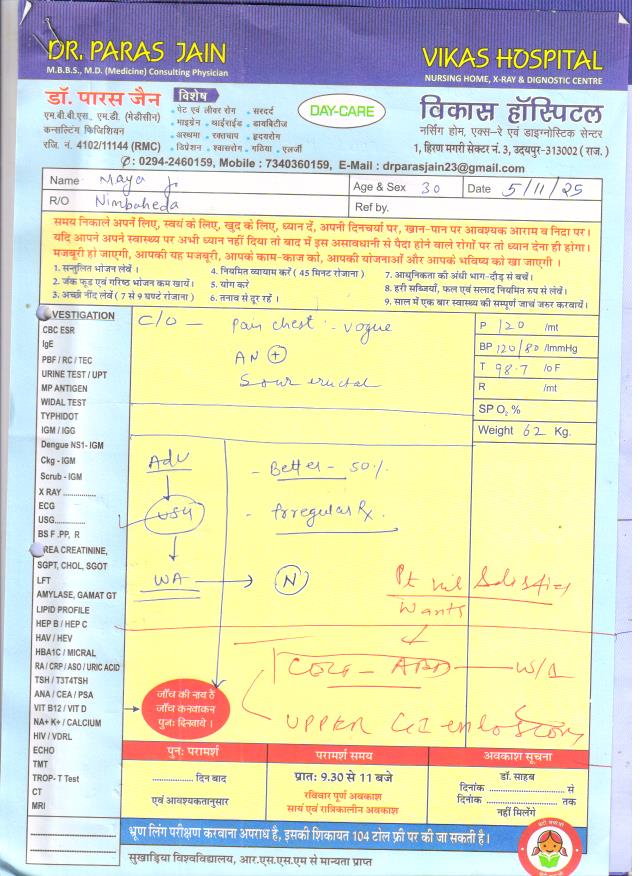 DR. PARAS JAIN
M.B.B.S., M.D. (Medicine) Consulting Physician
VIKAS HOSPITAL
NURSING HOME, X-RAY & DIGNOSTIC CENTRE
डॉ. पारस जैन
एम.बी.बी.एस., एम.डी. (मेडीसीन)
कन्सल्टिंग फिजिशियन
रजि. नं. 4102/11144 (RMC)
विशेष
• पेट एवं लीवर रोग • सरदर्द
• माइग्रेन • थाईराईड • डायबिटीज
• अस्थमा • रक्तचाप • हृदयरोग
• डिप्रेशन • श्वासरोग • गठिया • एलर्जी
DAY-CARE
विकास हॉस्पिटल
नर्सिंग होम, एक्स-रे एवं डाइग्नोस्टिक सेन्टर
1, हिरण मगरी सेक्टर नं. 3, उदयपुर-313002 ( राज. )
: 0294-2460159, Mobile : 7340360159, E-Mail : drparasjain23@gmail.com
Name Maya J.
Age & Sex 30
Date 5/11/25
R/O Nimbaheda
Ref by.
समय निकाले अपने लिए, स्वयं के लिए, खुद के लिए, ध्यान दें, अपनी दिनचर्या पर, खान-पान पर आवश्यक आराम व निद्रा पर।
यदि आपने अपने स्वास्थ्य पर अभी ध्यान नहीं दिया तो बाद में इस असावधानी से पैदा होने वाले रोगों पर तो ध्यान देना ही होगा।
मजबूरी हो जाएगी, आपकी यह मजबूरी, आपके काम-काज को, आपकी योजनाओं और आपके भविष्य को खा जाएगी ।
1. सन्तुलित भोजन लेवें । 4. नियमित व्यायाम करें ( 45 मिनट रोजाना ) 7. आधुनिकता की अंधी भाग-दौड़ से बचें।
2. जंक फूड एवं गरिष्ठ भोजन कम खायें। 5. योग करें 8. हरी सब्जियाँ, फल एवं सलाद नियमित रुप से लेवें।
3. अच्छी नींद लेवें ( 7 से 9 घण्टे रोजाना ) 6. तनाव से दूर रहें । 9. साल में एक बार स्वास्थ्य की सम्पूर्ण जाचं जरुर करवायें।
VESTIGATION
CBC ESR
IgE
PBF / RC / TEC
URINE TEST / UPT
MP ANTIGEN
WIDAL TEST
TYPHIDOT
IGM / IGG
Dengue NS1- IGM
Ckg - IGM
Scrub - IGM
X RAY ..............
ECG
USG....................
BS F .PP, R
REA CREATININE,
SGPT, CHOL, SGOT
LFT
AMYLASE, GAMAT GT
LIPID PROFILE
HEP B / HEP C
HAV / HEV
HBA1C / MICRAL
RA / CRP / ASO / URIC ACID
TSH / T3T4TSH
ANA / CEA / PSA
VIT B12 / VIT D
NA+ K+ / CALCIUM
HIV / VDRL
ECHO
TMT
TROP- T Test
CT
MRI
C/O - Pain chest :- vogue
AN +
Sour eructat
P 120 /mt
BP 120/80 /ImmHg
T 98.7 /oF
R /mt
SP O2 %
Weight 62 Kg.
Adv
USG
WA → N
- Better - 50%
- Irregular Rx.
Pt nil Satisfies
Wants
CECT - ABD — W/A
UPPER GI endoscopy
जाँच की नाव ठैं
जाँच करवाकर
पुनः दिखाये ।
पुनः परामर्श
............... दिन बाद
एवं आवश्यकतानुसार
परामर्श समय
प्रातः 9.30 से 11 बजे
रविवार पूर्ण अवकाश
सायं एवं रात्रिकालीन अवकाश
अवकाश सूचना
डॉ. साहब
दिनांक ........................ से
दिनांक ........................ तक
नहीं मिलेंगे
भ्रूण लिंग परीक्षण करवाना अपराध है, इसकी शिकायत 104 टोल फ्री पर की जा सकती है।
सुखाड़िया विश्वविद्यालय, आर.एस.एस.एम से मान्यता प्राप्त